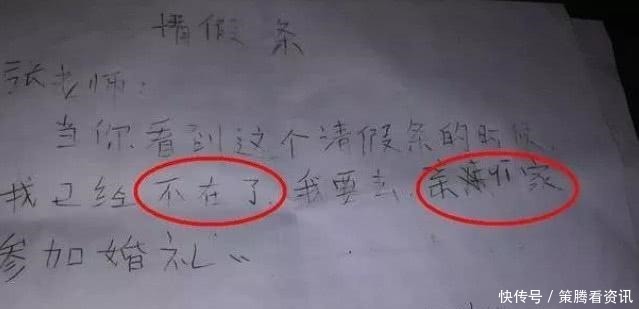 情假条
张老师:
当你看到这个清假条的时候,
我已经不在了,我要去家
参加婚礼
快传号 / 策腾看资讯